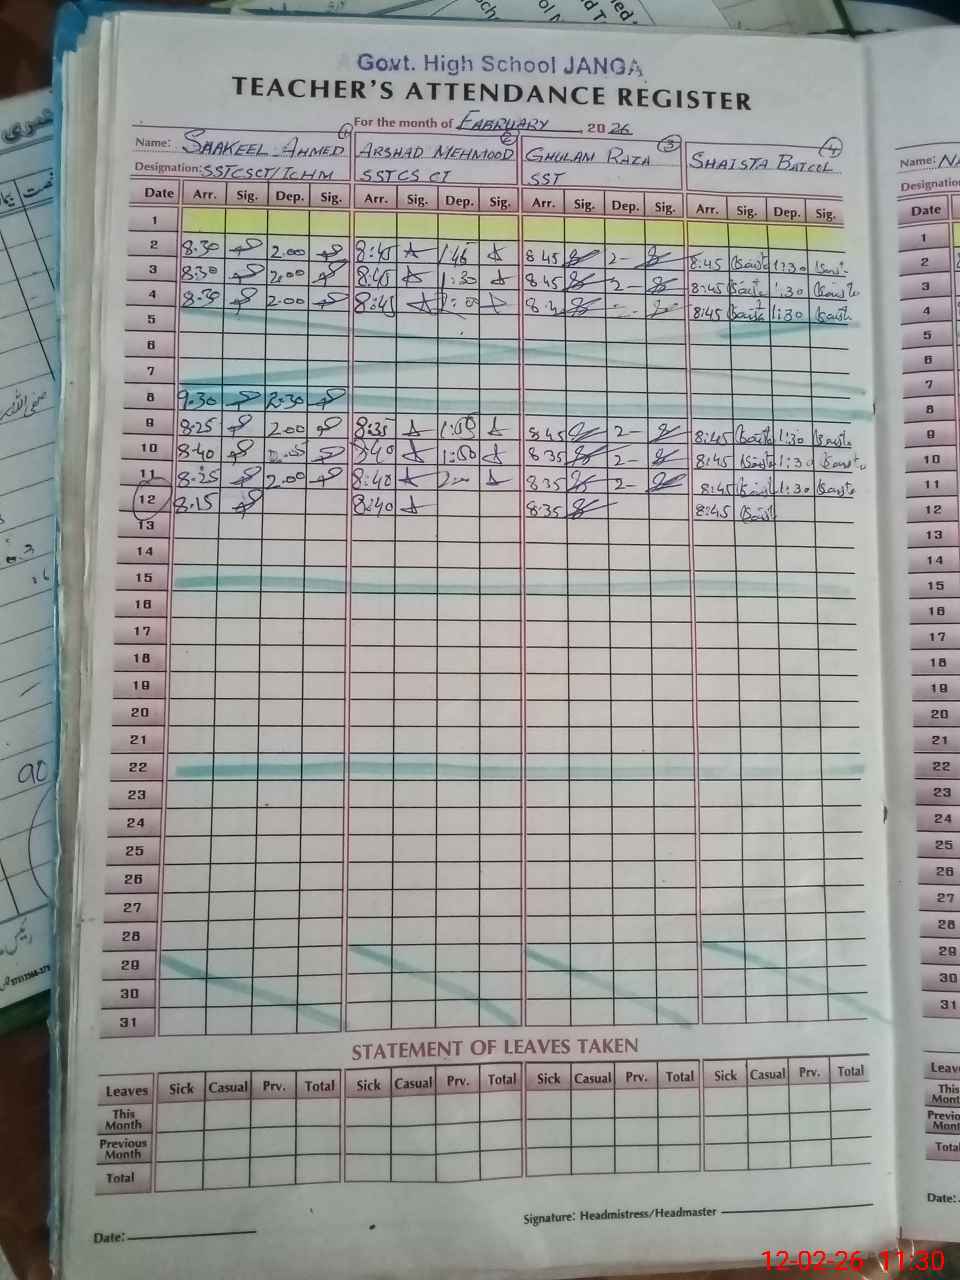 Govt. High School JANGA
TEACHER'S ATTENDANCE REGISTER
For the month of FAEBRUARY, 2026
Name: SHAKEEL AHMED ① ARSHAD MEHMOOD ② GHULAM RAZA ③ SHAISTA BATOOL ④
Designation: SSTCSCT/ICHM SSTCS CT SST
Date Arr. Sig. Dep. Sig. Arr. Sig. Dep. Sig. Arr. Sig. Dep. Sig. Arr. Sig. Dep. Sig.
1
2 8.30 2.00 8:45 1:45 8 45 2- 8:45 1:30
3 8:30 2.00 8:45 1:30 8 45 2- 8:45 1:30
4 8.30 2.00 8:45 8:45 1:30
5
6
7
8 9.30 2.30
9 8.25 2.00 8:35 8 45 2- 8:45 1:30
10 8.40 8:40 1:50 8 35 2- 8:45 1:30
11 8.25 2.00 8:40 8 35 2- 8:45 1:30
12 8.15 8:40 8.35 8:45
13
14
15
16
17
18
19
20
21
22
23
24
25
26
27
28
29
30
31
STATEMENT OF LEAVES TAKEN
Leaves Sick Casual Prv. Total Sick Casual Prv. Total Sick Casual Prv. Total Sick Casual Prv. Total
This Month
Previous Month
Total
Signature: Headmistress/Headmaster
Date:
Name:
Designation
Date
1
2
3
4
5
6
7
8
9
10
11
12
13
14
15
16
17
18
19
20
21
22
23
24
25
26
27
28
29
30
31
Total
Date:
90
12-02-26 11:30